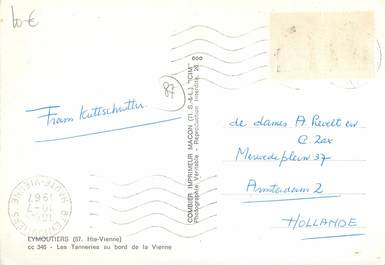 10€
87
Frans Kuttschrutter
COMBIER IMPRIMEUR MACON (71. S.-&-L.) "CIM"
Photographie Véritable - Reproduction Interdite
600
de dames A. Revelt en
C. Zax
Merwedeplein 37
Amsterdam 2
HOLLANDE
1967
HTE-VIENNE
EYMOUTIERS (87. Hte-Vienne)
cc 346 - Les Tanneries au bord de la Vienne